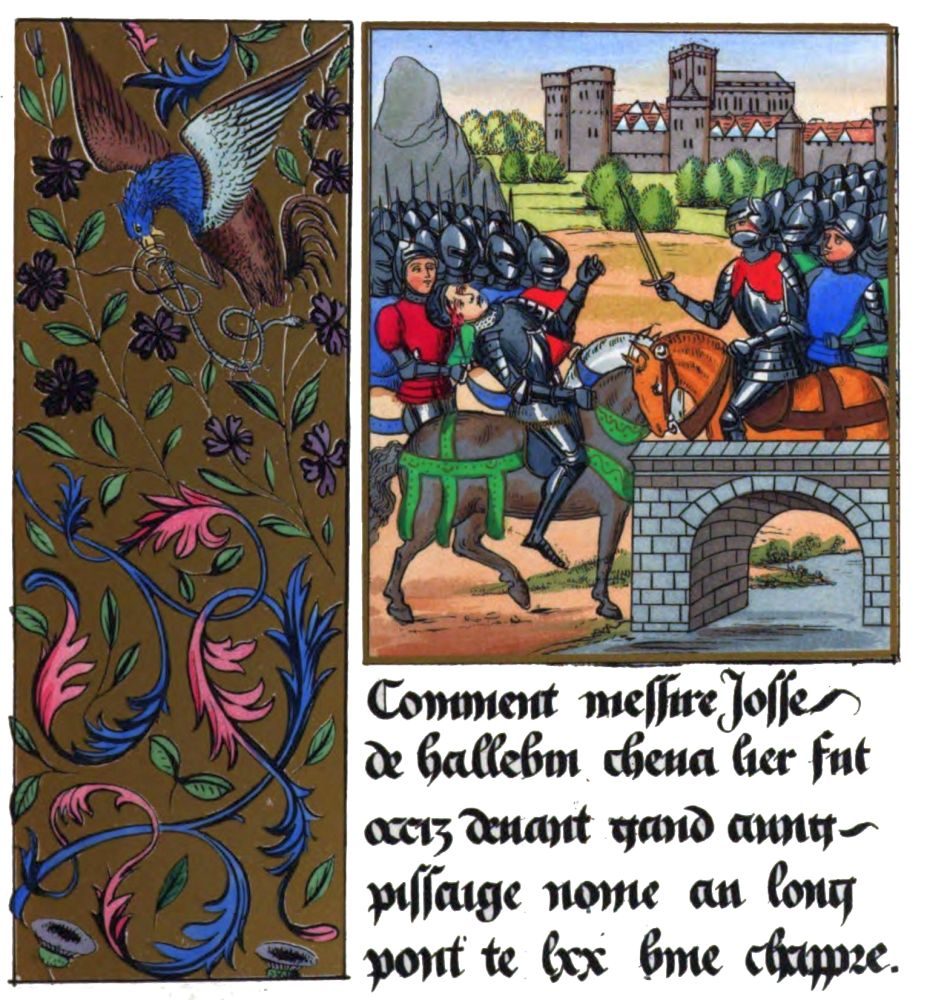 Comment messire Josse
de hallebin cheva lier fut
occiz devant gand aung
pissaige nome au long
pont te lxx bme chappre.